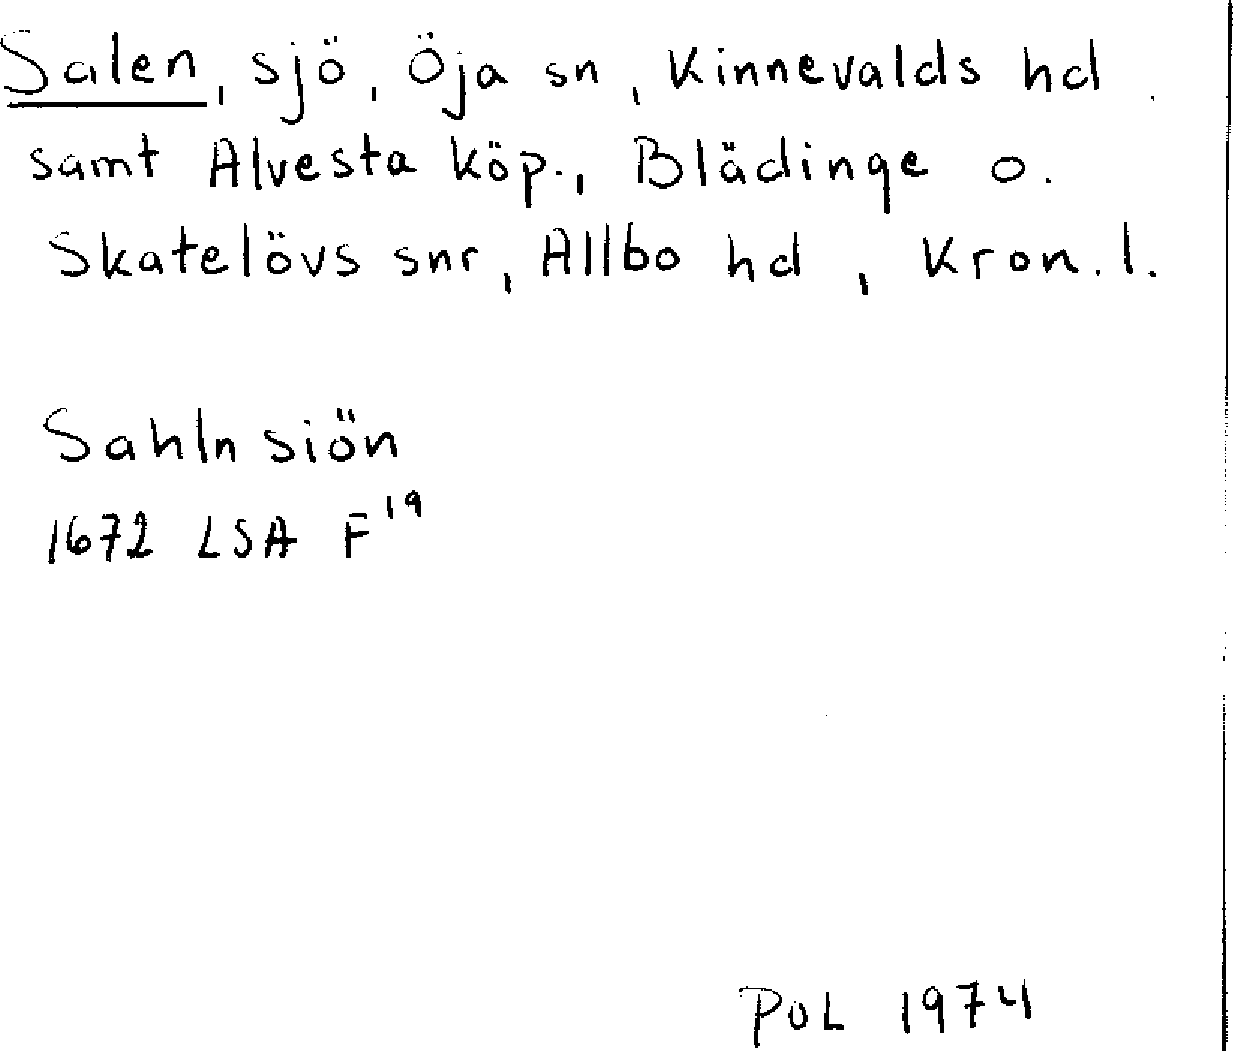 Salen, sjö, Öja sn, Kinnevalds hd
samt Alvesta köp., Blädinge o.
Skatelövs snr, Allbo hd, Kron. l.
Sahln siön
1672 LSA F¹⁹
PoL 1974